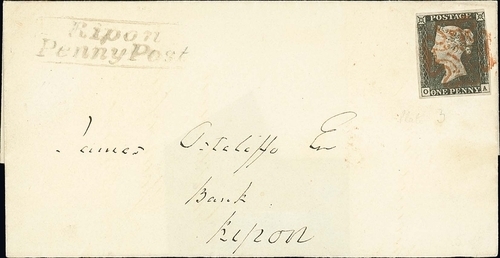 Ripon
Penny Post
POSTAGE
O A
ONE PENNY
James Esr
Bank
Ripon